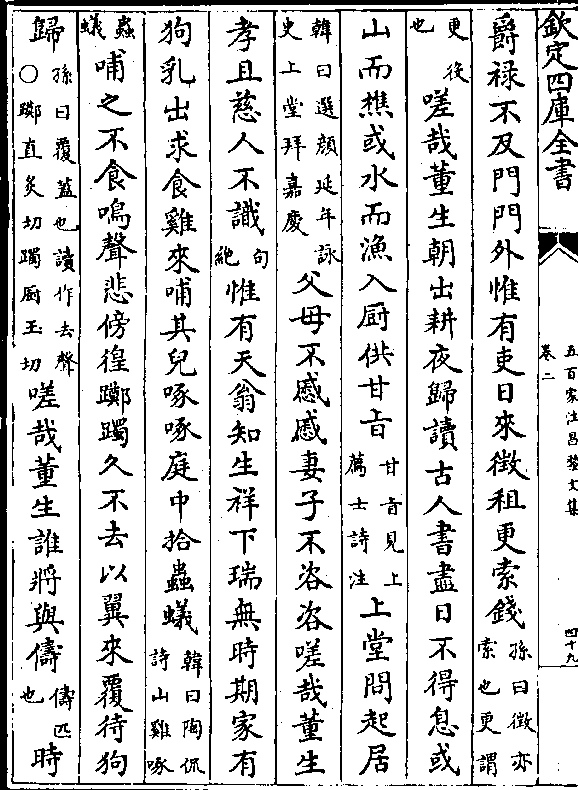 欽定四庫全書
五百家注昌黎文集
卷二
四十九
爵禄不及門門外惟有吏日來徵租更索錢孫曰徵亦索也更謂
更後也嗟哉董生朝出耕夜歸讀古人書盡日不得息或
山而樵或水而漁入厨供甘旨甘旨見上薦士詩注上堂問起居
韓曰選顔延年詠史上堂拜嘉慶父母不慼慼妻子不咨咨嗟哉董生
孝且慈人不識句絶惟有天翁知生祥下瑞無時期家有
狗乳出求食雞來哺其兒啄啄庭中拾蟲蟻韓曰陶侃詩山雞啄
蟲蟻哺之不食鳴聲悲傍徨躑躅久不去以翼來覆待狗
歸孫曰覆蓋也讀作去聲○躑直炙切躅厨玉切嗟哉董生誰將與儔儔匹也時